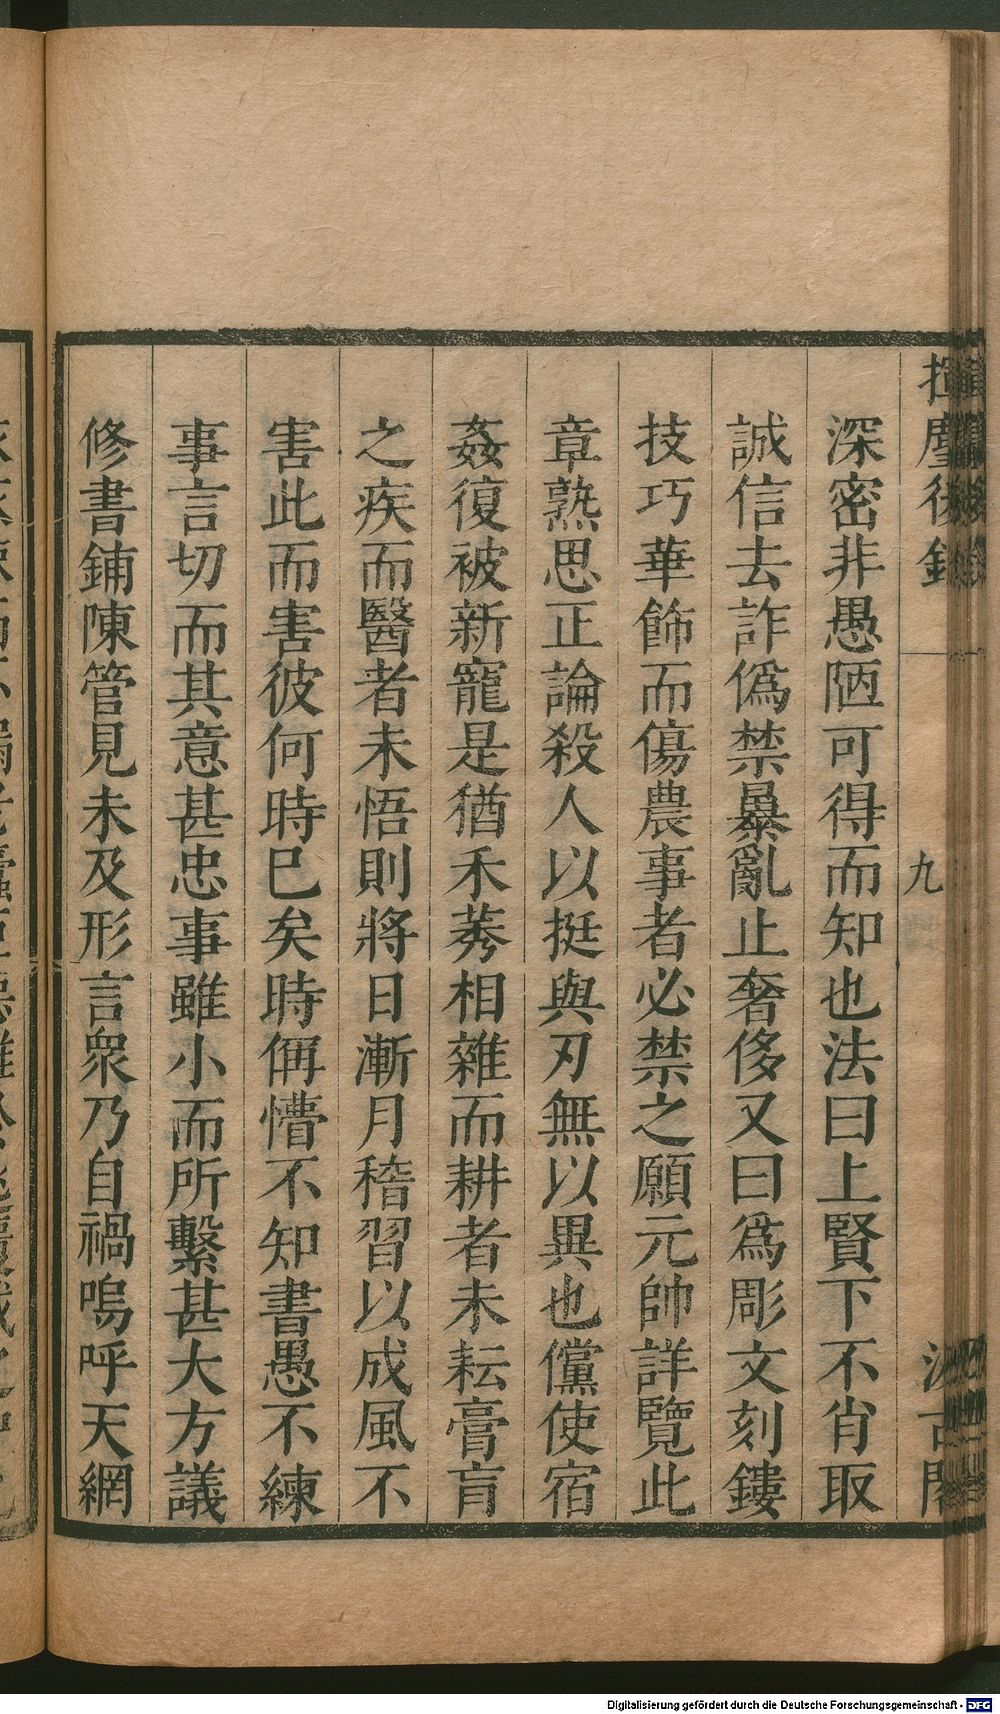 揮麈後錄
九
汲古閣
深密非愚陋可得而知也法曰上賢下不肖取
誠信去詐僞禁暴亂止奢侈又曰爲彫文刻鏤
技巧華飾而傷農事者必禁之願元帥詳覽此
章熟思正論殺人以挺與刃無以異也儻使宿
姦復被新寵是猶禾莠相雜而耕者未耘膏肓
之疾而醫者未悟則將日漸月稽習以成風不
害此而害彼何時巳矣時偁懵不知書愚不練
事言切而其意甚忠事雖小而所繫甚大方議
修書鋪陳管見未及形言衆乃自禍嗚呼天網
Digitalisierung gefördert durch die Deutsche Forschungsgemeinschaft - DFG